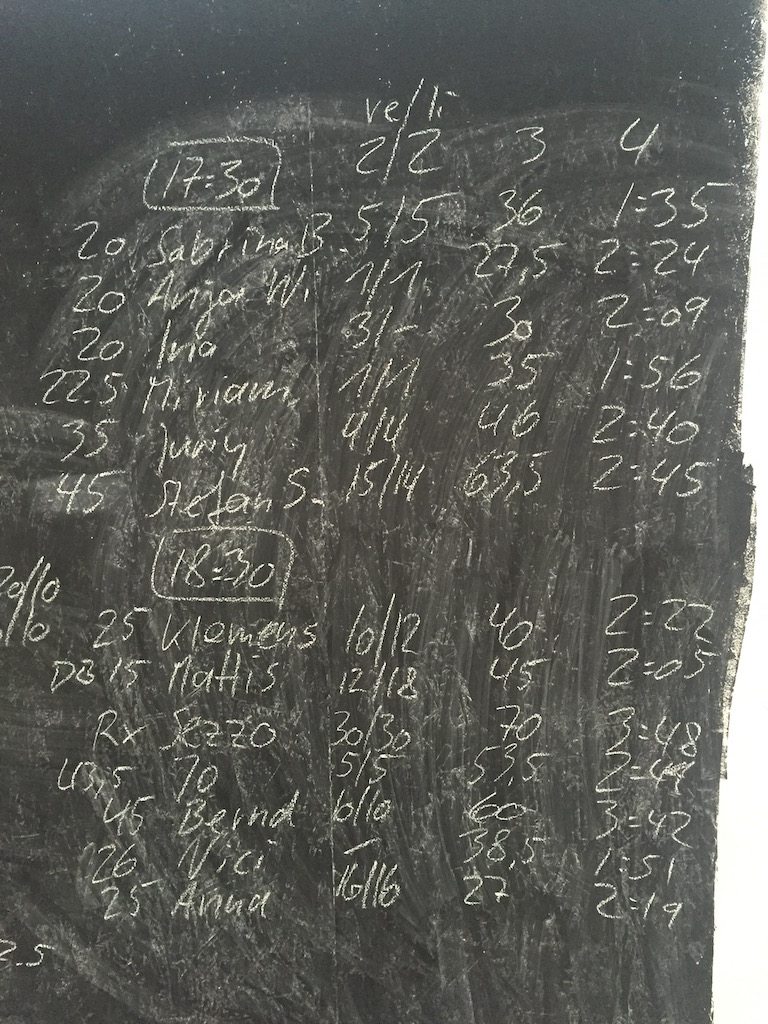 ve/li
17:30 2/2 3 4
20 Sabrina B. 5/5 36 1:35
20 Anja Wi 1/1 27,5 2:24
20 Ina 3/- 30 2:09
22.5 Miriam 1/1 35 1:56
35 Juriy 4/4 46 2:40
45 Stefan S. 15/14 63,5 2:45
18:30
25 Klemens 10/12 40 2:22
DB 15 Mattis 12/18 45 2:05
Rx Sezzo 30/30 70 3:48
43,5 70 5/5 53,5
45 Bernd 60 3:42
26 Nici - 38,5 1:51
25 Anna 16/16 27 2:19
2.5